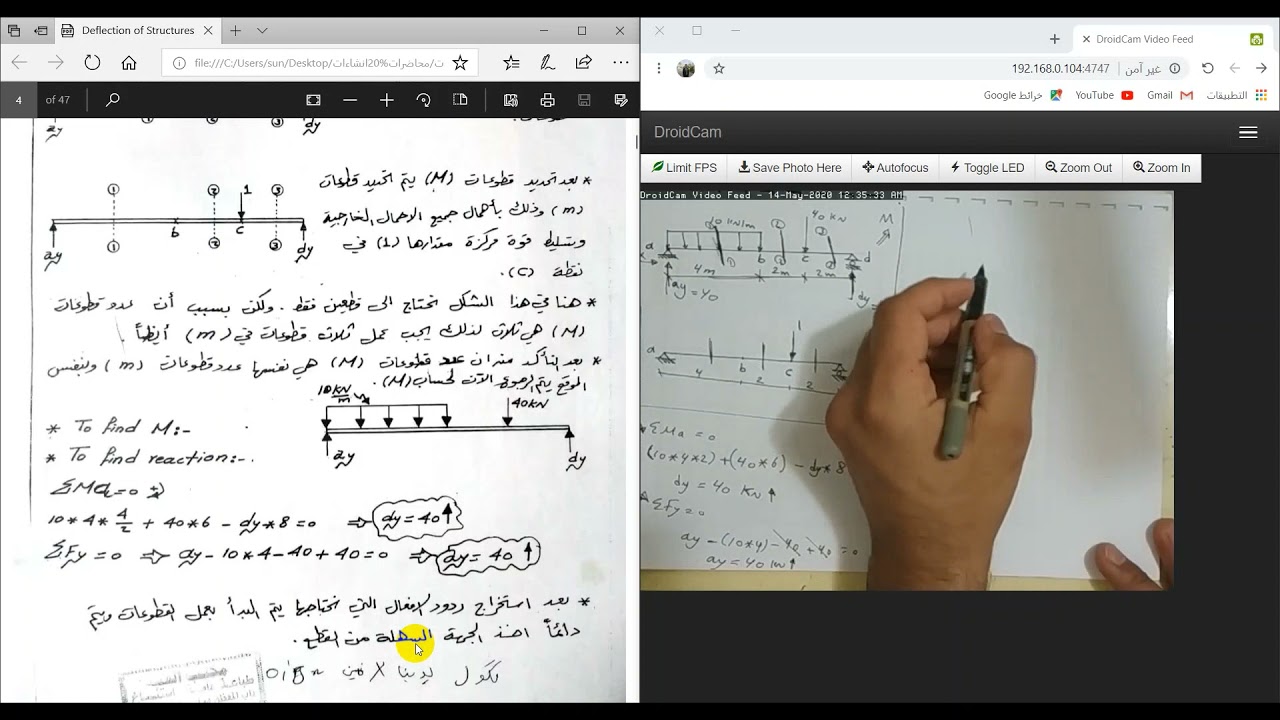 Deflection of Structures
file:///C:/Users/sun/Desktop/محاضرات%20انشاءات/ت
4 of 47
ay
1
2
3
dy
طوعات.
* بعد تحديد قطوعات (M) يتم تحديد قطوعات
(m) وذلك بأهمال جميع الاحمال الخارجية
وتسليط قوة مركزة مقدارها (1) في
نقطة (C).
1 2 1 3
b c
1 2 3
ay dy
* هنا في هذا الشكل نحتاج الى قطعين فقط. ولكن بسبب أن عدد قطوعات
(M) هي ثلاث لذلك يجب عمل ثلاث قطوعات في (m) أيضاً.
* بعد التأكد من ان عدد قطوعات (M) هي نفسها عدد قطوعات (m) ولنفس
الموقع يتم الرجوع الآن لحساب (M).
10 KN/m
40KN
ay dy
* To find M:-
* To find reaction:-
ΣMa=0
10*4*4/2 + 40*6 - dy*8 =0 ⇒ dy=40↑
ΣFy =0 ⇒ ay-10*4-40+40=0 ⇒ ay=40↑
* بعد استخراج ردود الافعال التي نحتاجها يتم البدأ بعمل القطوعات ويتم
دائماً اخذ الجهة السهلة من القطع.
DroidCam Video Feed
غير آمن
192.168.0.104:4747
التطبيقات Gmail YouTube خرائط Google
DroidCam
Limit FPS Save Photo Here Autofocus Toggle LED Zoom Out Zoom In
DroidCam Video Feed - 14-May-2020 12:35:33 AM
40 KN
M
a b c d
4m 2m 2m
ay=40 dy=
1
a b c
4 2 2
*ΣMa =0
(10*4*2)+(40*6) - dy*8
dy = 40 KN↑
ΣFy=0
ay-(10*4)-40+40=0
ay=40 KN↑